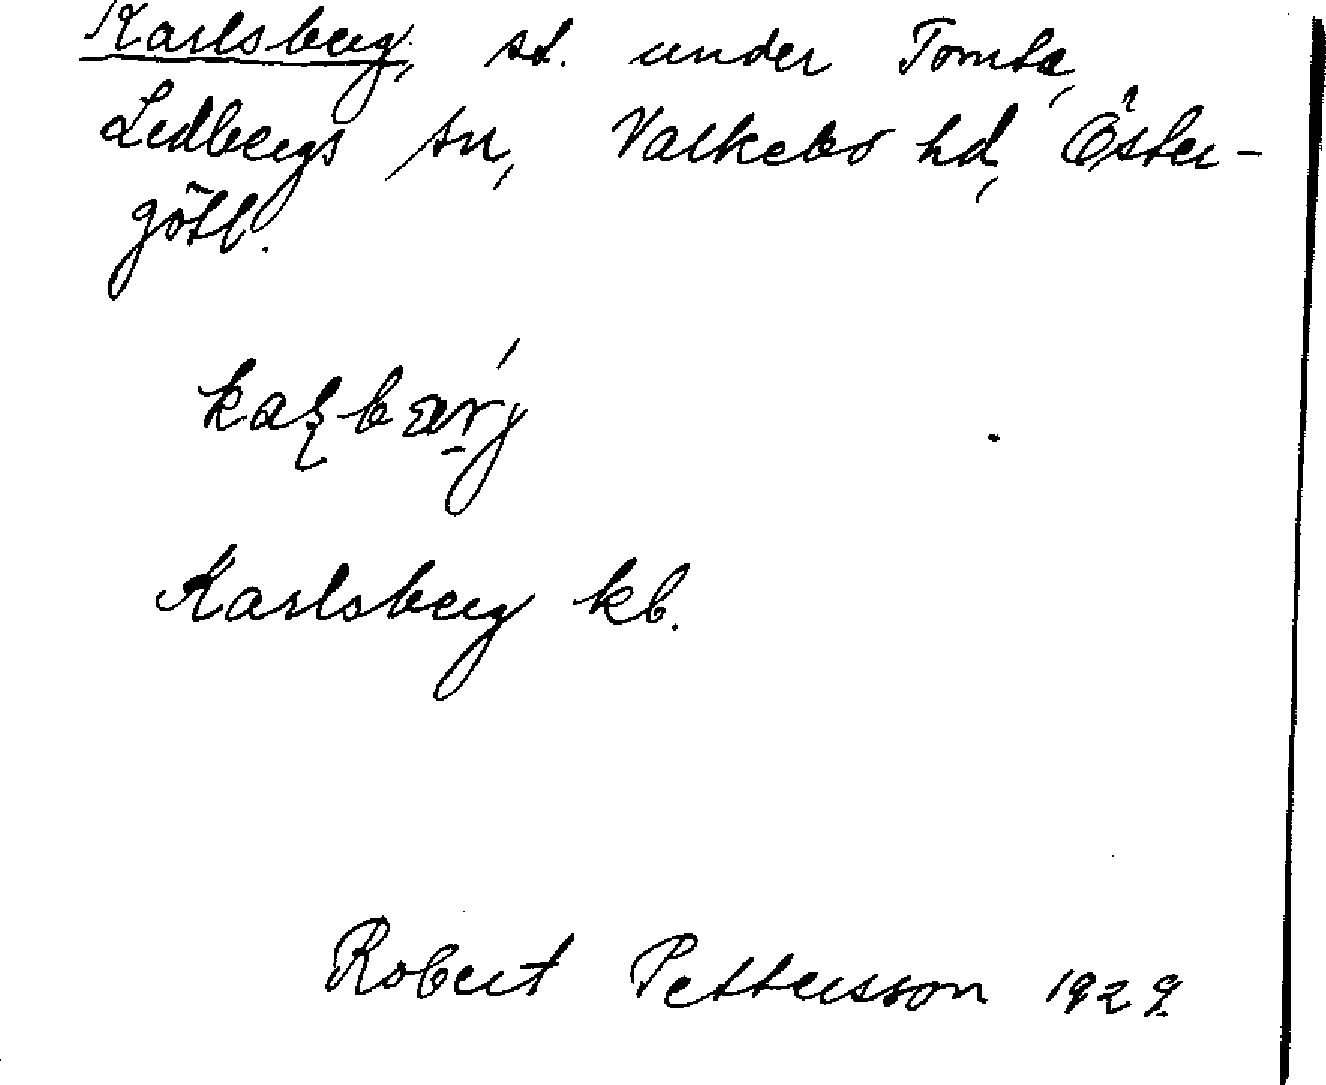 Karlsberg, st. under Tomta,
Ledbergs sn, Valkebo hd, Öster-
götl.
Karlsberg kb.
Robert Pettersson 1929